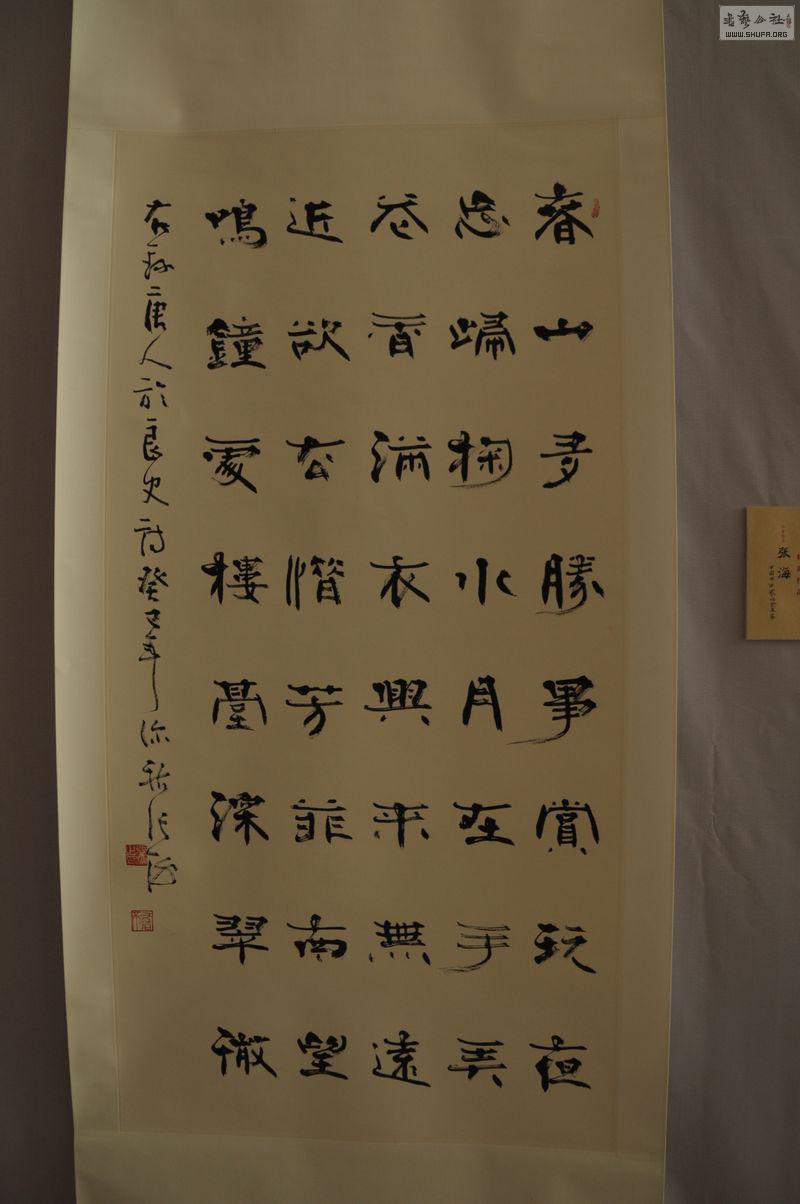 春山多勝事賞玩夜
忘歸掬水月在手弄
花香滿衣興來無遠
近欲去惜芳菲南望
鳴鐘處樓臺深翠微
右錄唐人於良史詩癸巳年深秋張海
张海
書藝公社
WWW.SHUFA.ORG